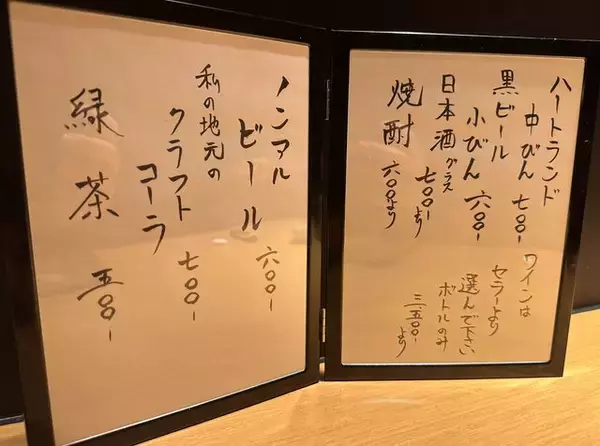 ハートランド
中びん 七〇〇-
黒ビール
小びん 六〇〇-
日本酒グラス
七〇〇-より
焼酎 六〇〇より
ワインは
セラーより
選んで下さい
ボトルのみ
三.五〇〇-より
ノンアル
ビール 六〇〇-
私の地元の
クラフト
コーラ 七〇〇-
緑茶 五〇〇-